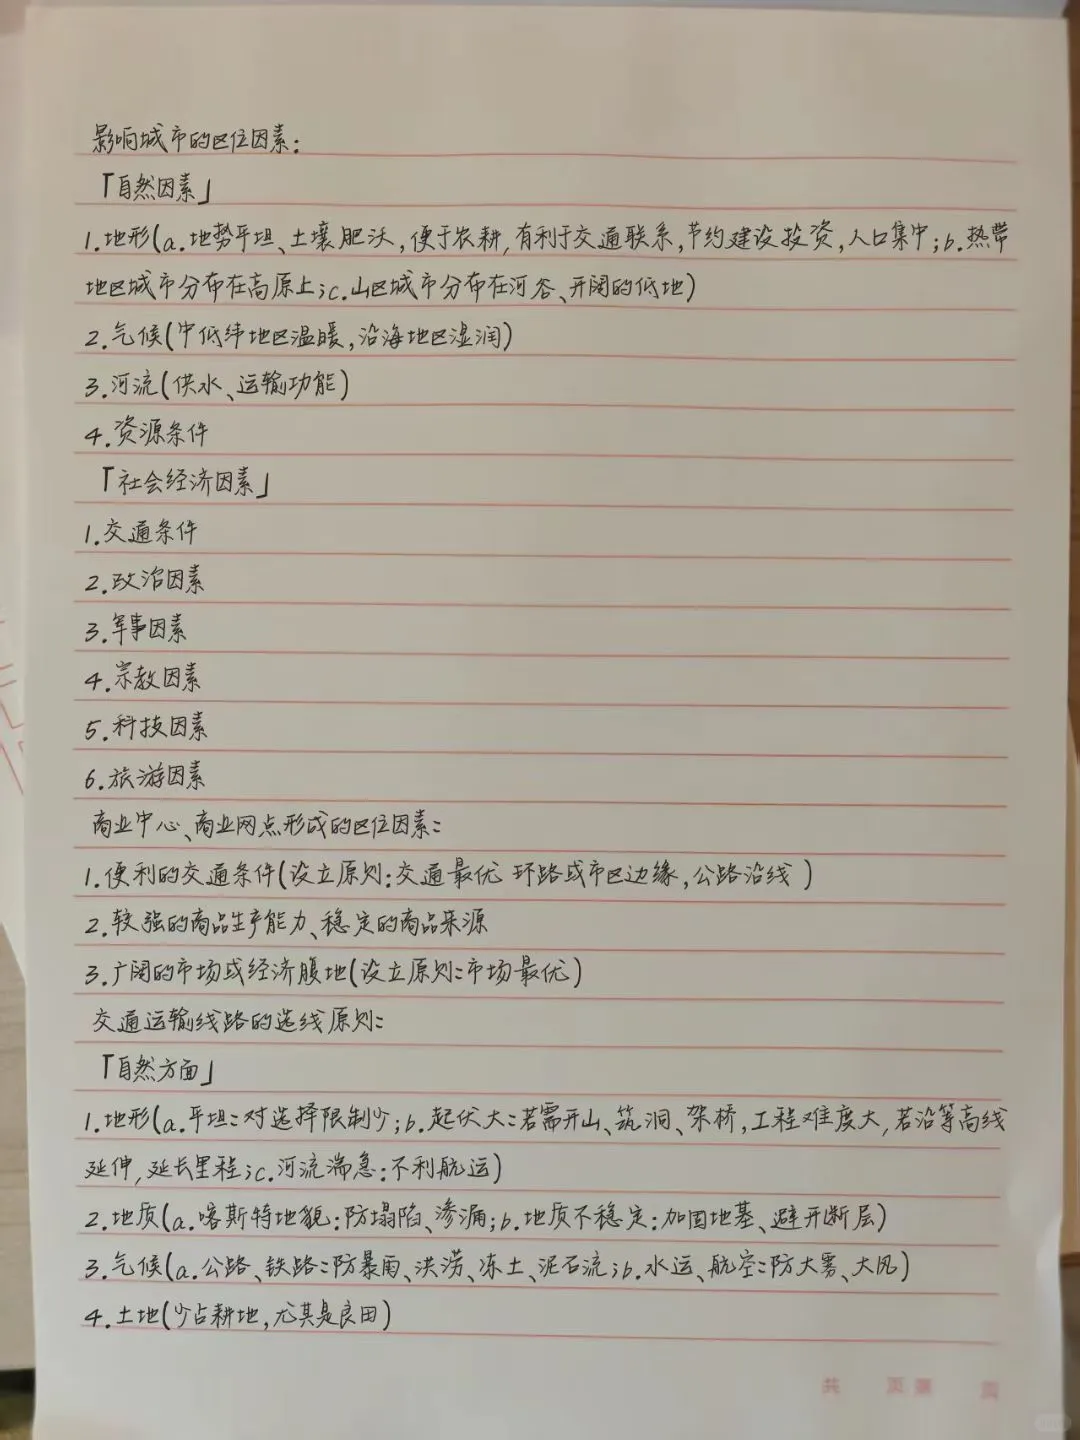 影响城市的区位因素:
「自然因素」
1.地形(a.地势平坦、土壤肥沃,便于农耕,有利于交通联系,节约建设投资,人口集中;b.热带
地区城市分布在高原上;c.山区城市分布在河谷、开阔的低地)
2.气候(中低纬地区温暖,沿海地区湿润)
3.河流(供水、运输功能)
4.资源条件
「社会经济因素」
1.交通条件
2.政治因素
3.军事因素
4.宗教因素
5.科技因素
6.旅游因素
商业中心、商业网点形成的区位因素:
1.便利的交通条件(设立原则:交通最优 环路或市区边缘,公路沿线)
2.较强的商品生产能力、稳定的商品来源
3.广阔的市场或经济腹地(设立原则:市场最优)
交通运输线路的选线原则:
「自然方面」
1.地形(a.平坦:对选择限制少;b.起伏大:若需开山、筑洞、架桥,工程难度大,若沿等高线
延伸,延长里程;c.河流湍急:不利航运)
2.地质(a.喀斯特地貌:防塌陷、渗漏;b.地质不稳定:加固地基、避开断层)
3.气候(a.公路、铁路:防暴雨、洪涝、冻土、泥石流;b.水运、航空:防大雾、大风)
4.土地(少占耕地,尤其是良田)
共 页第 页